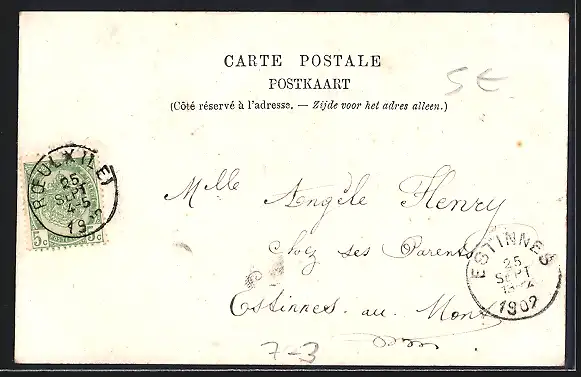 CARTE POSTALE
POSTKAART
(Côté réservé à l'adresse. — Zijde voor het adres alleen.)
5 €
RŒULX (LE)
25
SEPT
4-5
19
5c 5c
Mlle Angèle Henry
Chez ses Parents
Estinnes. au. Mont
ESTINNES
25
SEPT
1902
7-3